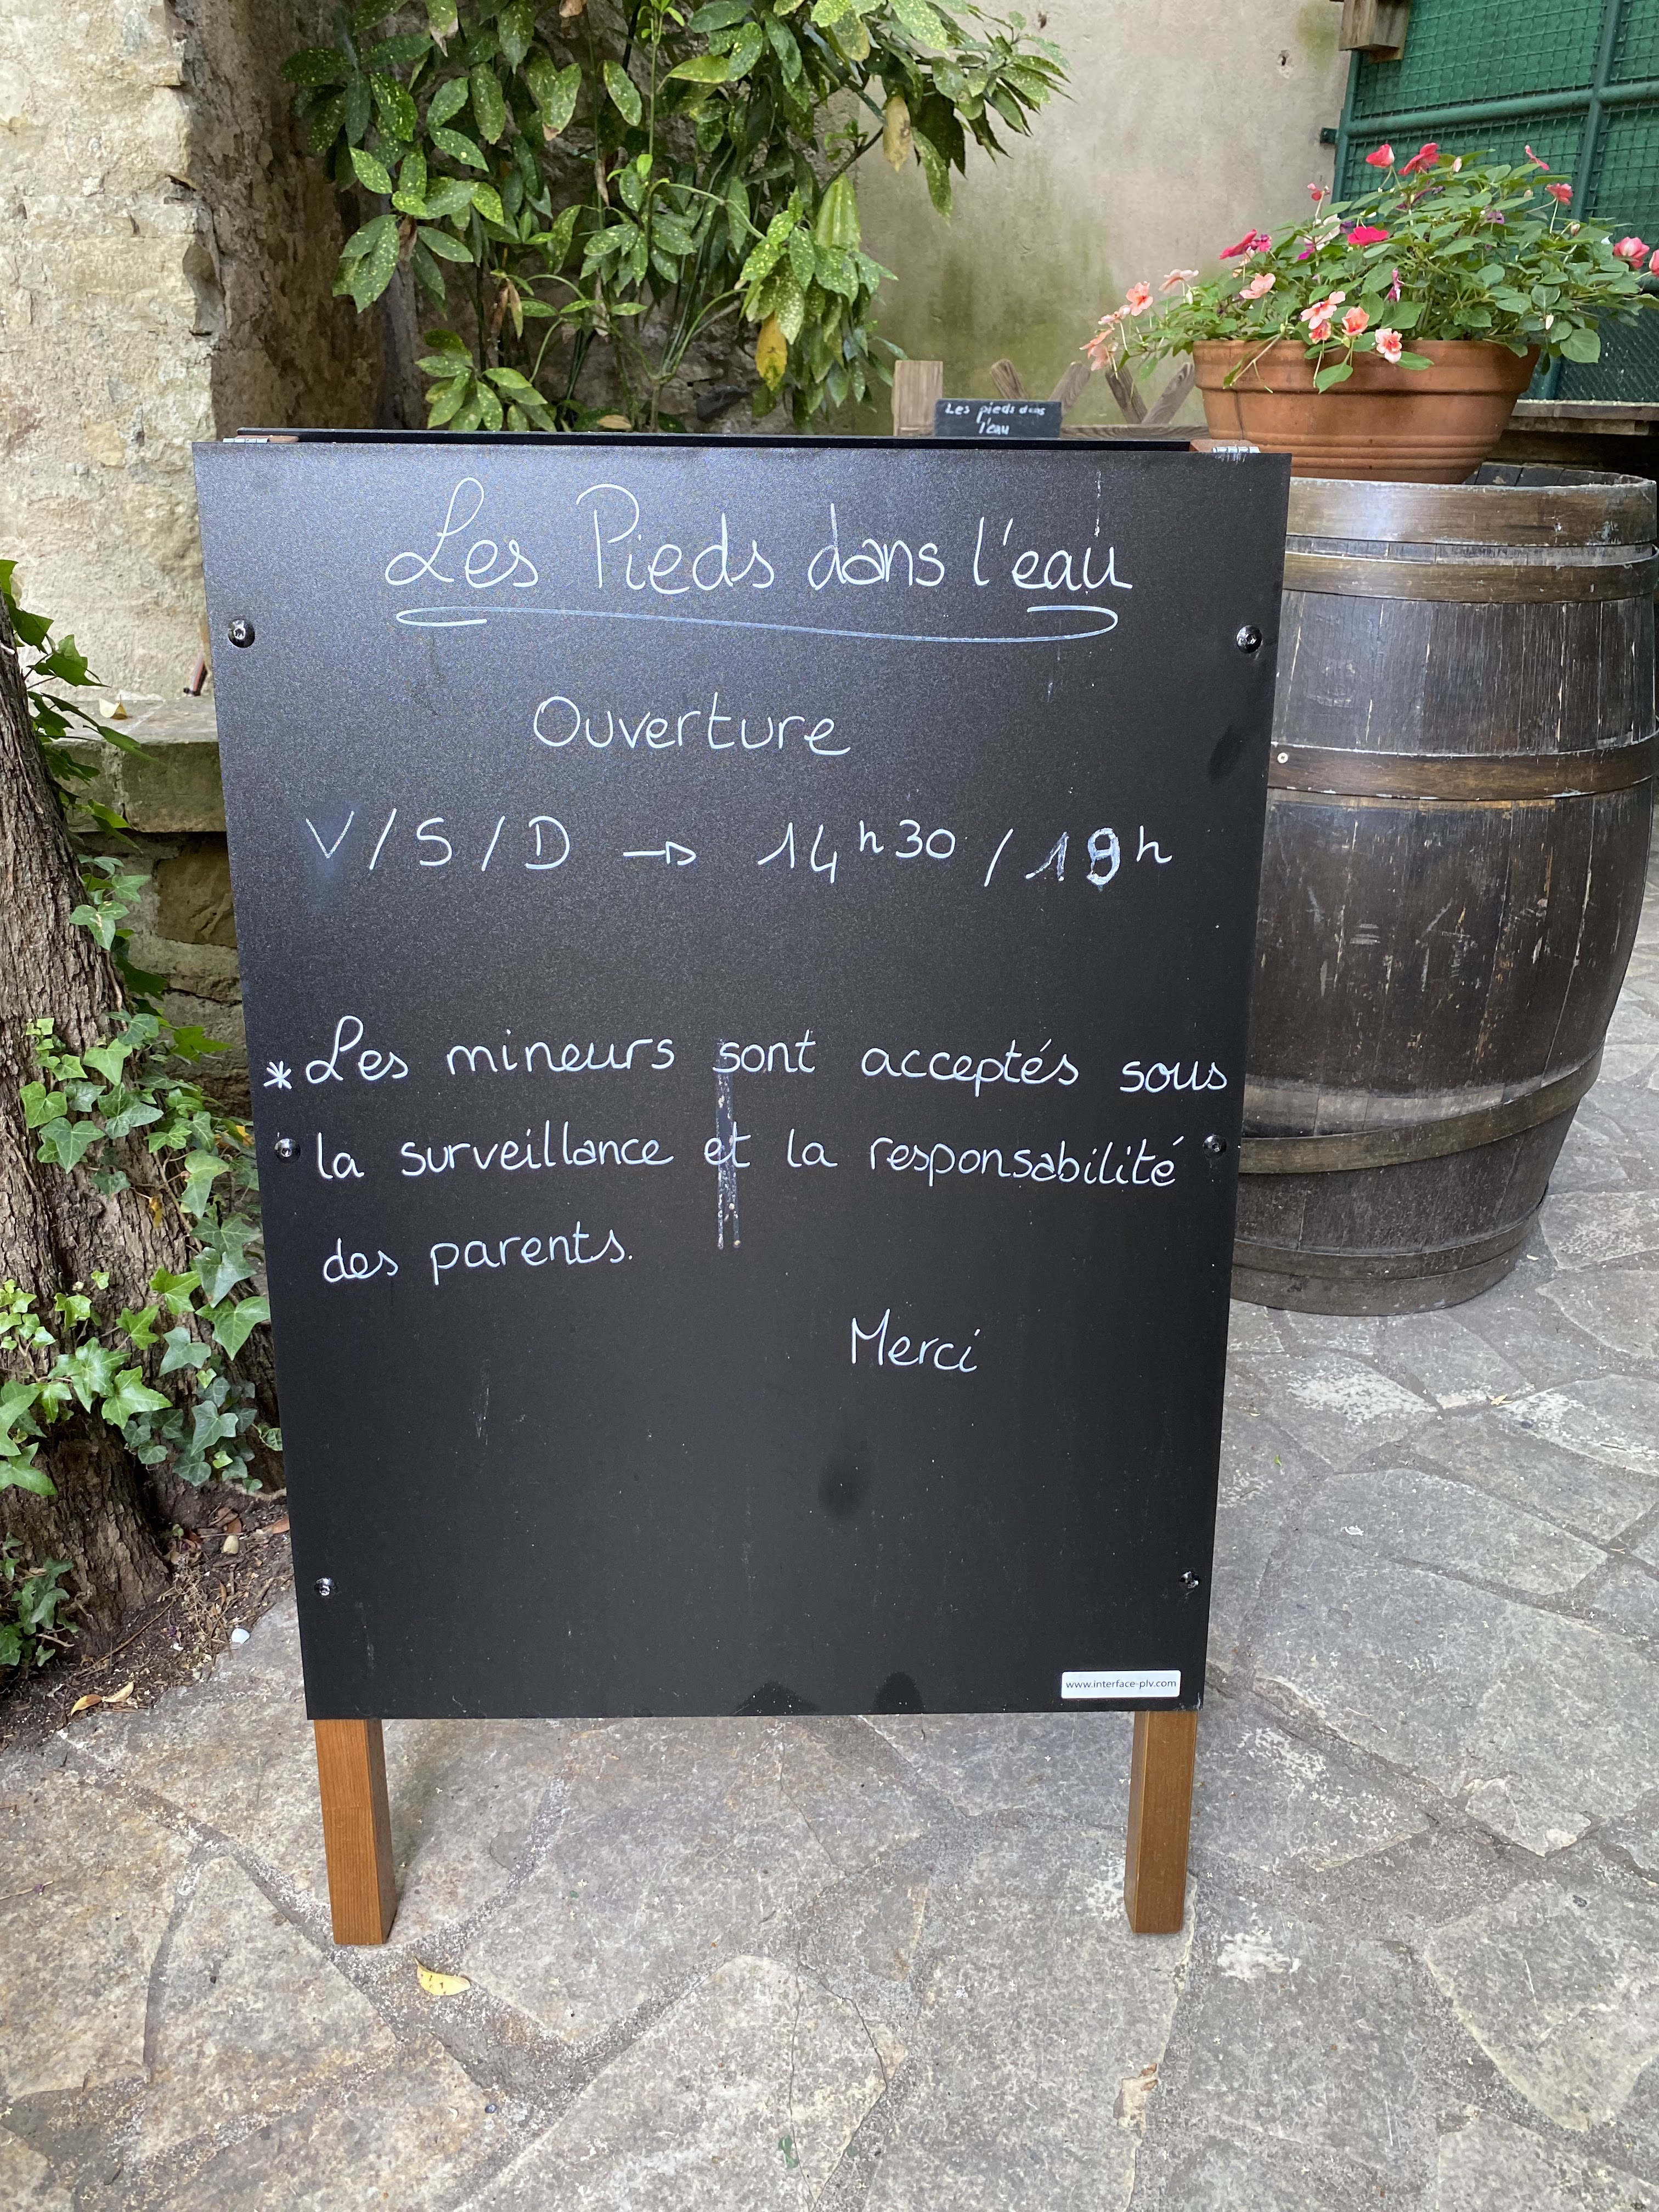 Les pieds dans
l'eau
Les Pieds dans l'eau
Ouverture
V/S/D → 14h30 / 19h
*Les mineurs sont acceptés sous
la surveillance et la responsabilité
des parents.
Merci
www.interface-plv.com